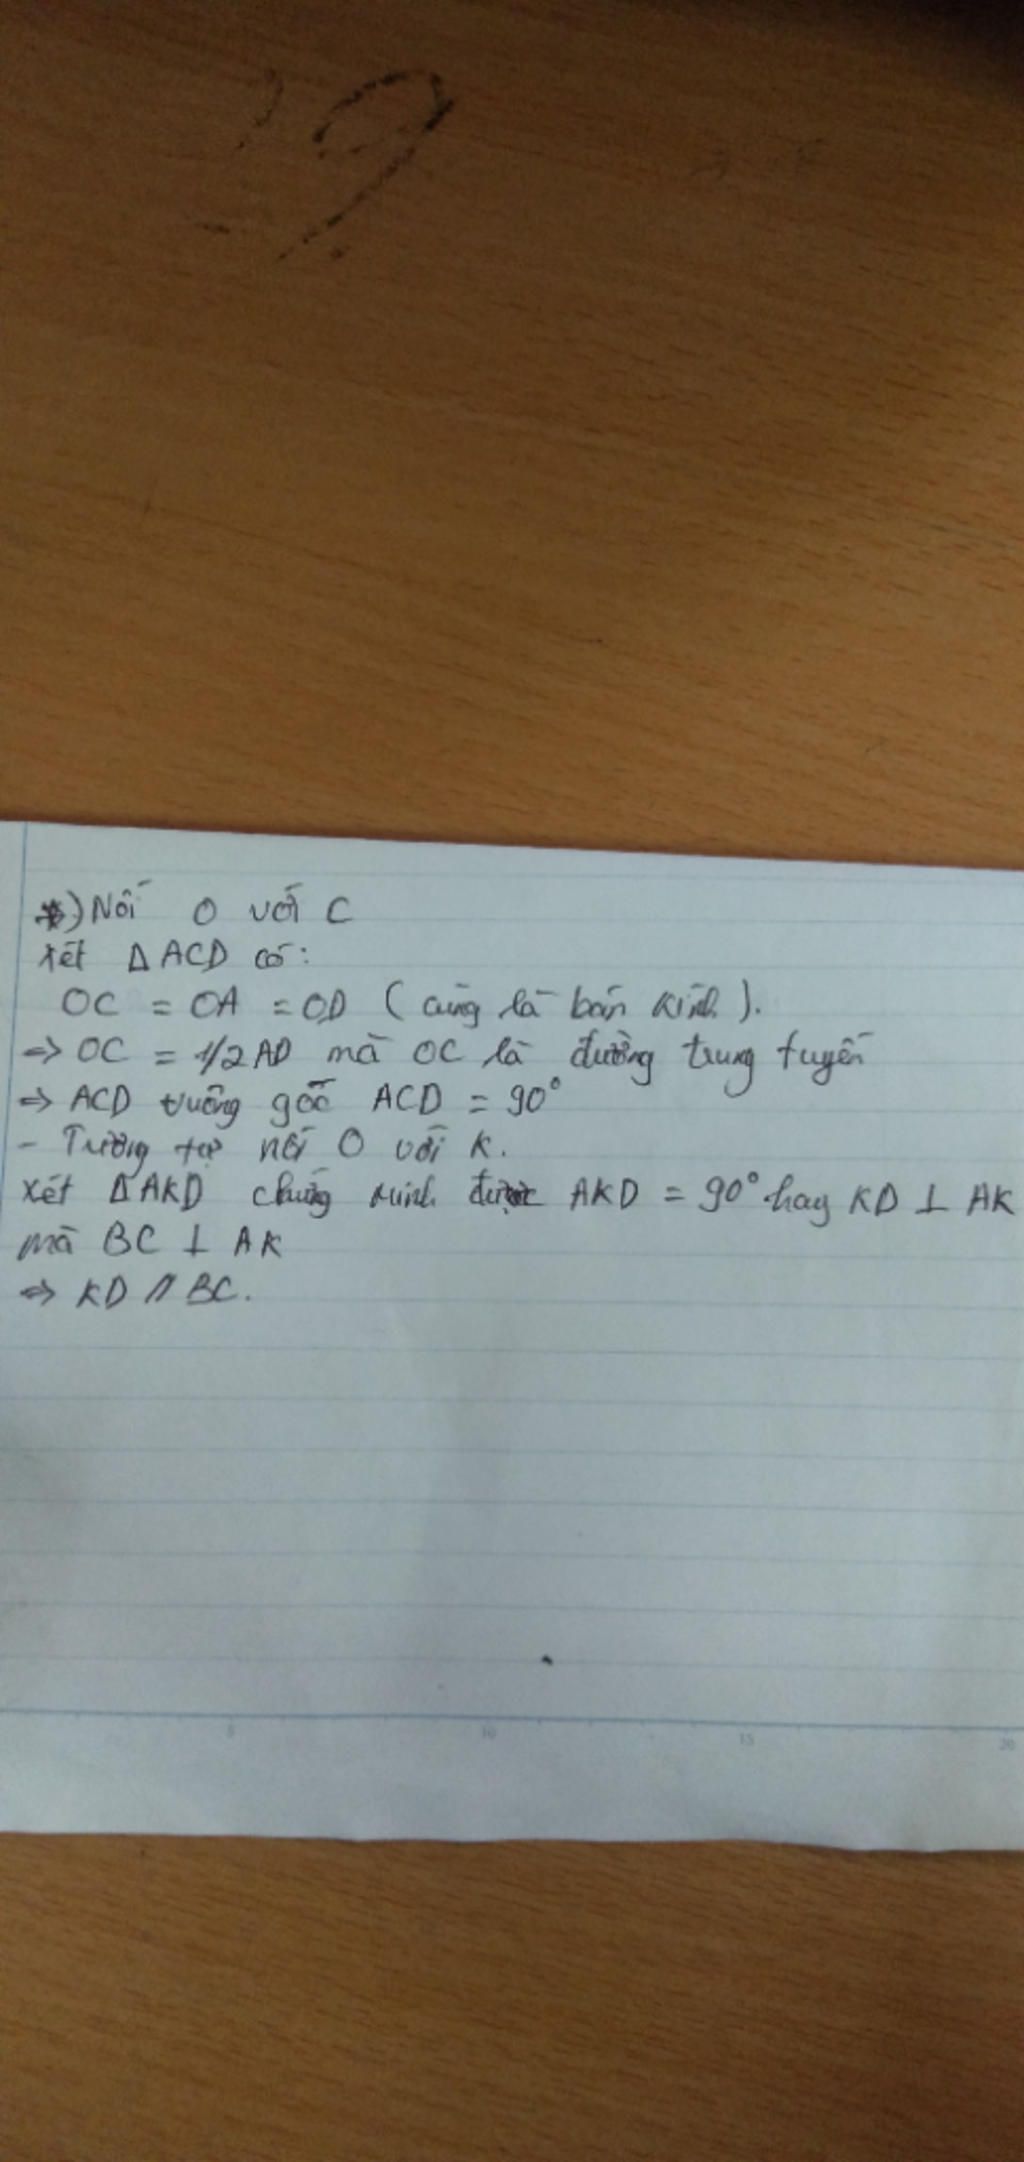 *) Nối O với C
Xét Δ ACD có:
OC = OA = OD ( cùng là bán kính ).
=> OC = 1/2 AD mà OC là đường trung tuyến
=> ACD vuông góc ACD = 90°
- Tương tự nối O với K.
Xét Δ AKD chứng minh được AKD = 90° hay KD ⊥ AK
mà BC ⊥ AK
=> KD // BC.
5 10 15 20